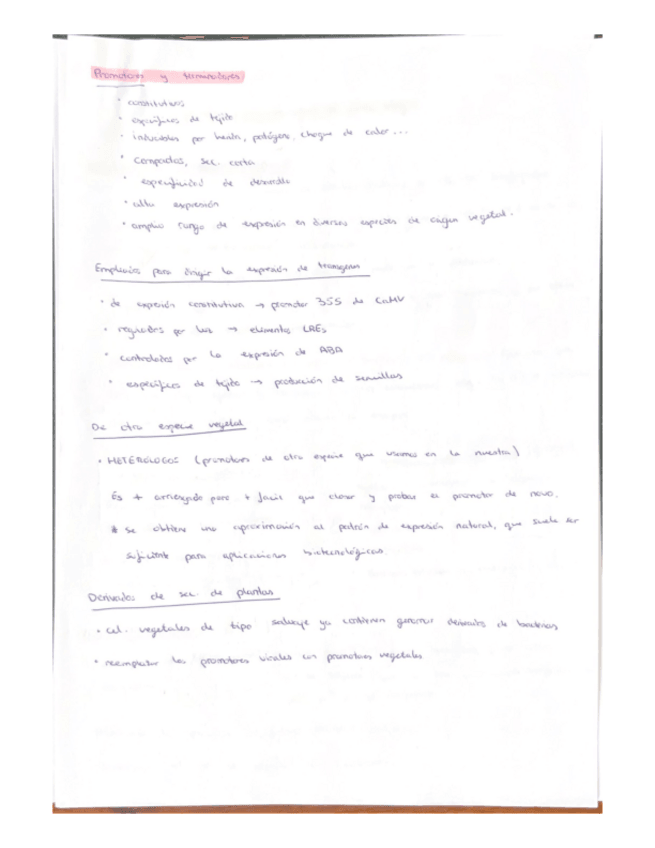 Promotores y terminadores
• constitutivos
• específicos de tejido
• inducibles por herida, patógeno, choque de calor...
• compactos, sec. corta
• especificidad de desarrollo
• alta expresión
• amplio rango de expresión en diversas especies de origen vegetal.
Empleados para dirigir la expresión de transgenes
• de expresión constitutiva → promotor 35S de CaMV
• regulados por luz → elementos LREs
• controlados por la expresión de ABA
• específicos de tejido → producción de semillas
De otra especie vegetal
• HETERÓLOGOS (promotores de otra especie que usamos en la nuestra)
Es + arriesgado pero + fácil que clonar y probar el promotor de novo.
* se obtiene una aproximación al patrón de expresión natural, que suele ser
suficiente para aplicaciones biotecnológicas
Derivados de sec. de plantas
• cel. vegetales de tipo salvaje ya contienen derivados de bacterias
• reemplazar los promotores virales con promotores vegetales